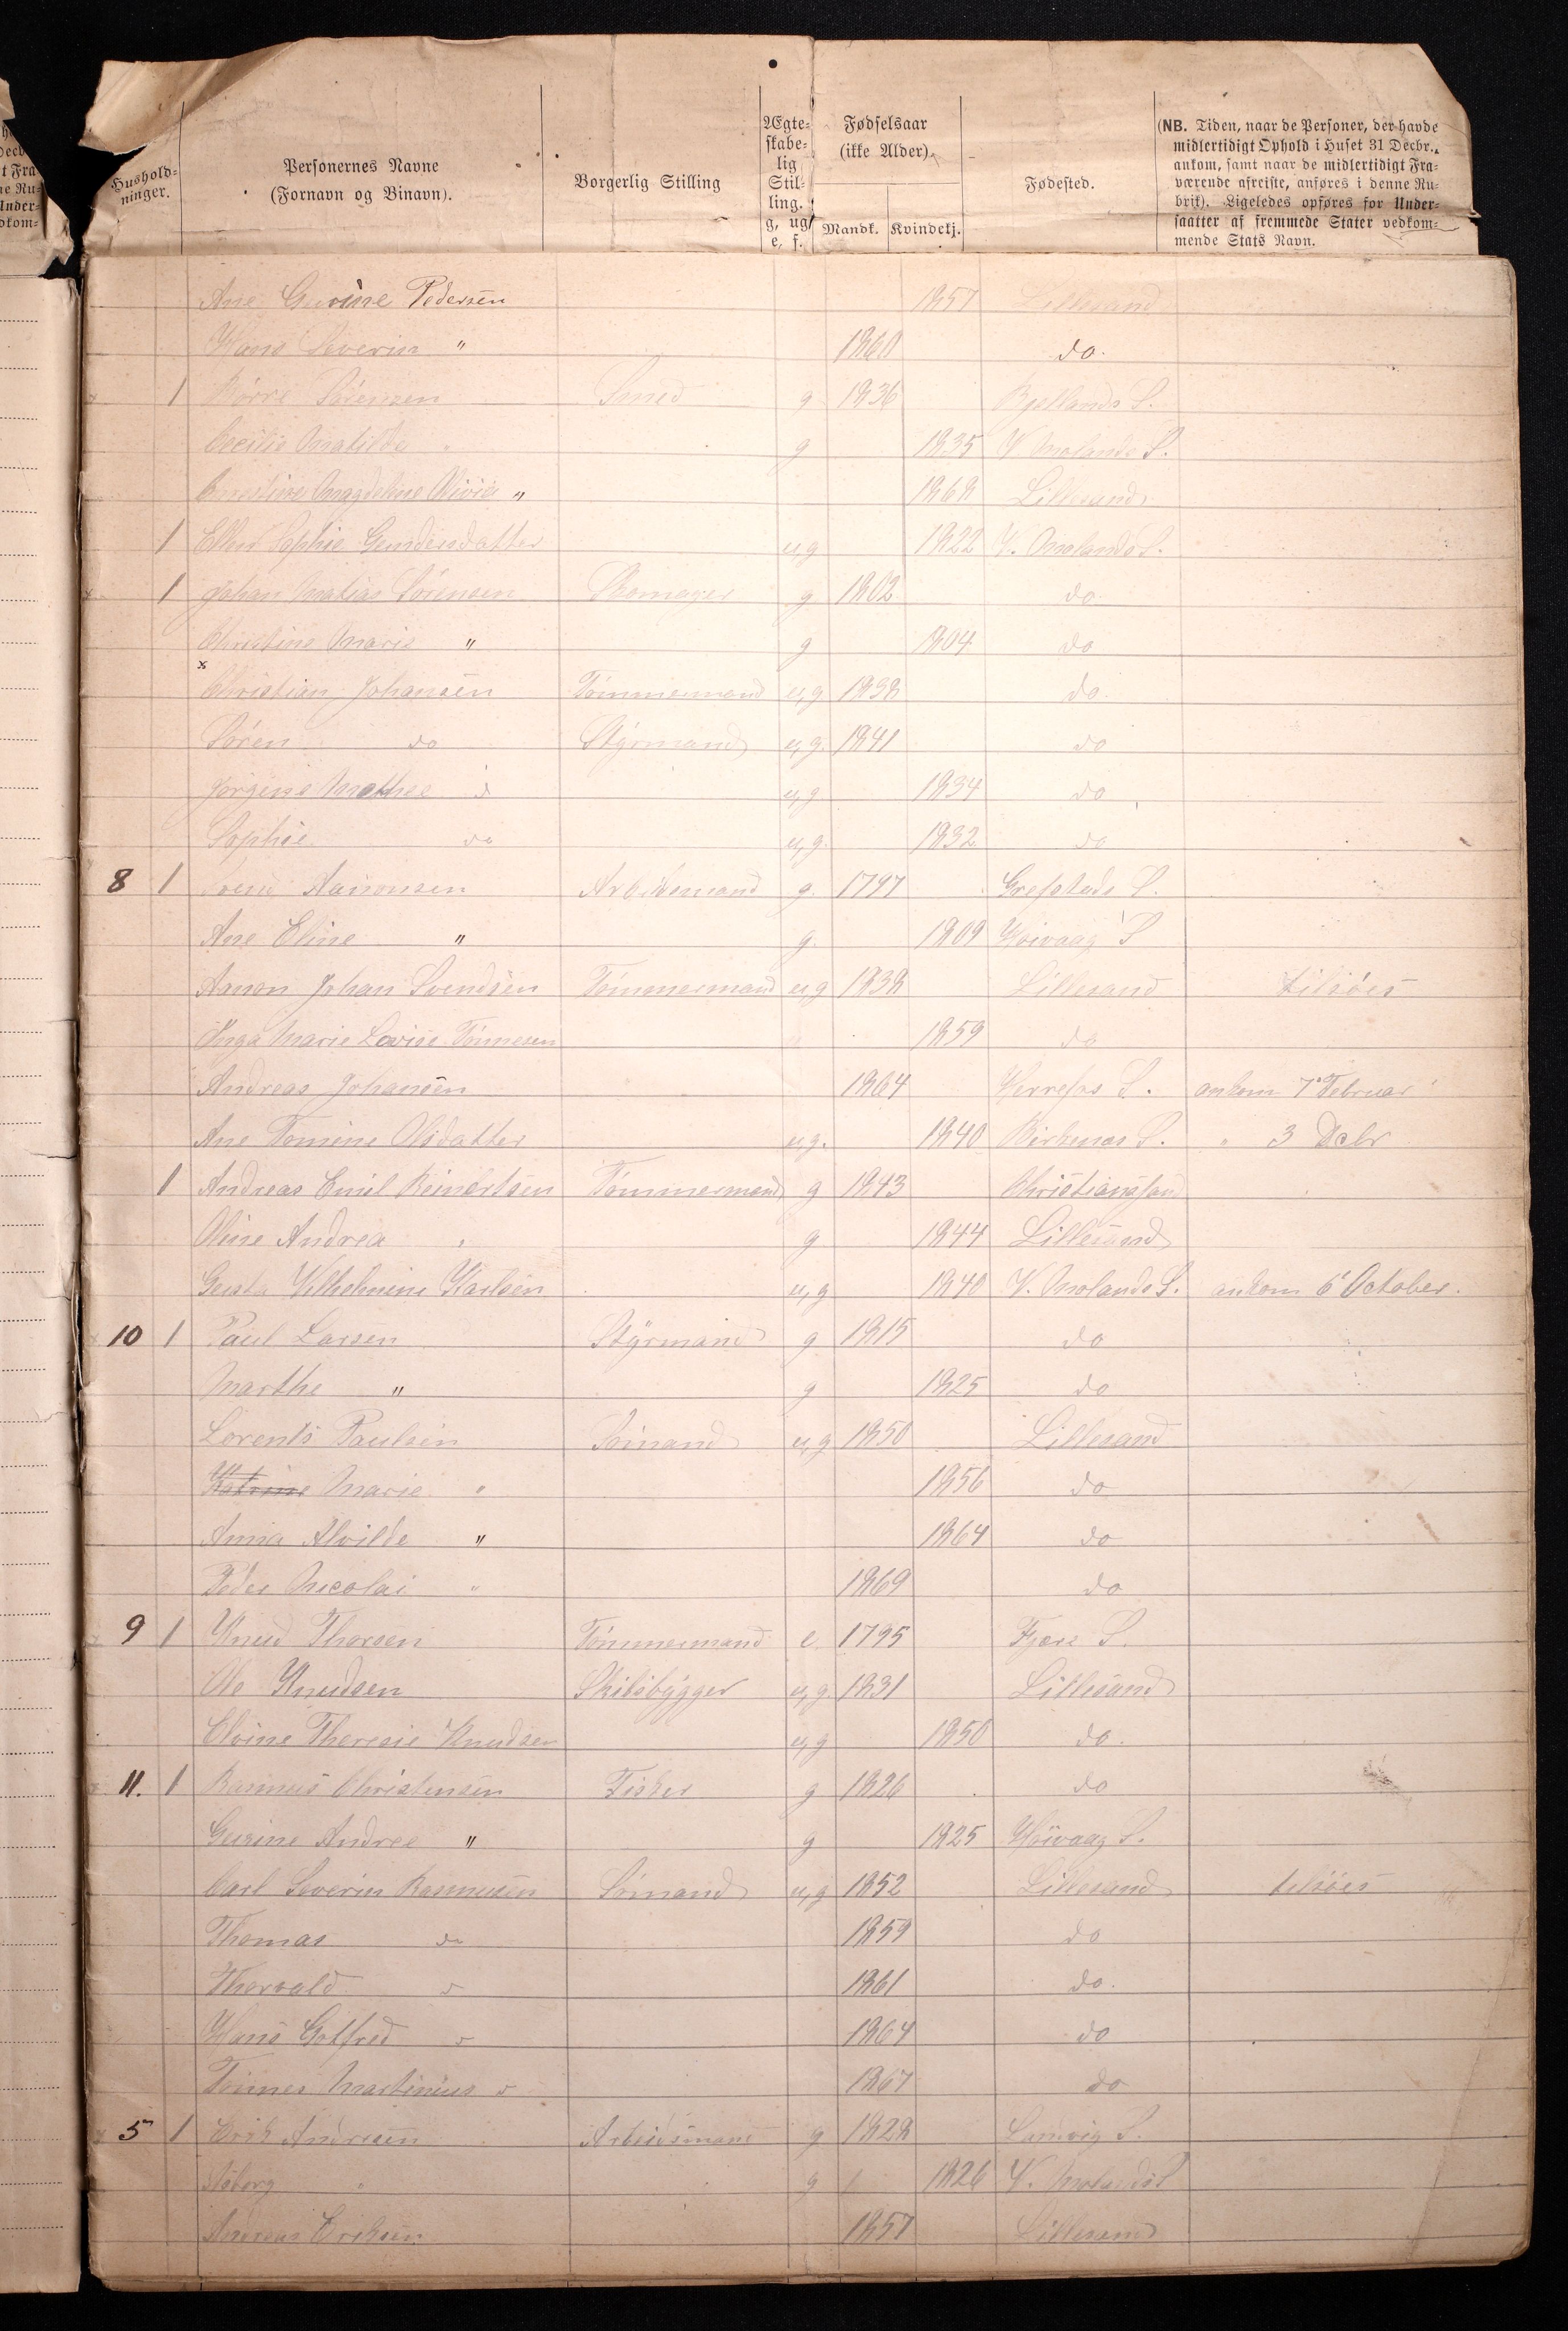 Hushold-
ninger.
Personernes Navne
(Fornavn og Binavn).
Borgerlig Stilling
Ægte-
skabe-
lig
Stil-
ling.
g, ug
e, f.
Fødselsaar
(ikke Alder).
Mandk. Kvindekj.
Fødested.
(NB. Tiden, naar de Personer, der havde
midlertidigt Ophold i Huset 31 Decbr.,
ankom, samt naar de midlertidigt Fra-
værende afreiste, anføres i denne Ru-
brik). Ligeledes opføres for Under-
saatter af fremmede Stater vedkom-
mende Stats Navn.
Ane Pedersen 1857 Lillesand
Hans Severin " 1860 do.
1 Børre Sørensen Smed g 1836 S.
Cecilie Matilde " g 1835 V. Molands S.
Magdeline Olivia " 1868 Lillesand
1 Ellen Sophie u,g 1822 V. Molands S.
1 Johan Matias Sørensen Skomager g 1802 do
Christine Marie " g 1804 do
x Christian Johansen Tømmermand u,g 1838 do.
Søren do Styrmand u,g. 1841 do
Jørgine d u,g 1834 do
Sophie do u,g. 1832 do
8 1 Svend Aanonsen Arbeidsmand g. 1797 S.
Ane Eline " g. 1809 Høivaag S
Aanon Johan Svendsen Tømmermand u,g 1838 Lillesand tilsøes
Inga Marie Lovise Tønnesen 1859 do
Andreas Johansen 1864 S. ankom 7' Februar
Ane Tomine Olsdatter u,g. 1840 Birkenæs S. " 3 Dcbr
1 Andreas Emil Reinertsen Tømmermand g 1843 Christianssand
Oline Andrea " g 1844 Lillesand
Vilhelmine Karlsen u,g 1840 V. Molands S. ankom 6' October.
10 1 Paul Larsen Styrmand g 1815 do
Marthe " g 1825 do
Lorents Paulsen Sømand u,g 1850 Lillesand
Katrine Marie " 1856 do
Anna Alvilde " 1864 do
Peder Nicolai " 1869 do
9 1 Knud Thorsen Tømmermand e. 1795 Fjære S.
Ole Knudsen Skibsbygger u,g. 1831 Lillesand
Elvine Theresie Knudsen u,g 1850 do.
11. 1 Rasmus Christensen Fisker g 1826 do
Andrea " g 1825 Høivaag S.
Carl Severin Rasmussen Sømand u,g 1852 Lillesand tilsøes
Thomas do 1859 do
Thorvald 1861 do.
Hans Gotfred 1864 do
Tønnes Martinius 1867 do
5 1 Erik Andresen Arbeidsmand g 1828 Landvig S.
Asborg " g 1826 V. Molands S
Andreas Eriksen 1857 Lillesand